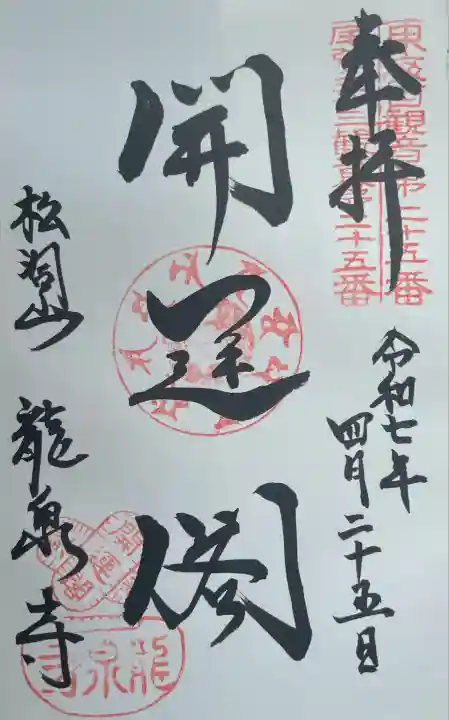 奉拝
東海百観音第二十五番
尾張三十三観音第二十五番
令和七年
四月二十五日
開運閣
松洞山
龍泉寺
龍泉寺